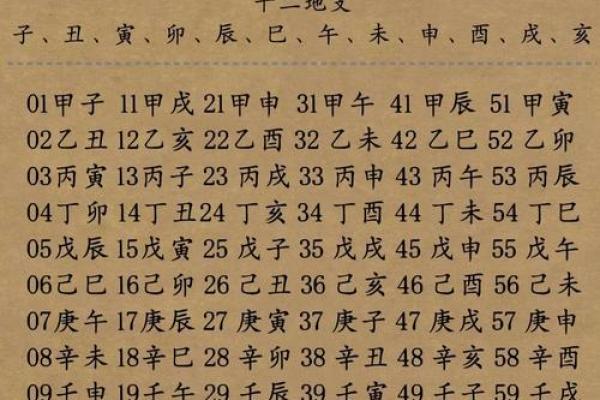 十二地支
子、丑、寅、卯、辰、巳、午、未、申、酉、戌、亥
01甲子 11甲戌 21甲申 31甲午 41 甲辰 51 甲寅
02乙丑 12乙亥 22乙酉 32 乙未 42 乙巳 52 乙卯
03丙寅 13丙子 23 丙戌 33 丙申 43 丙午 53 丙辰
04丁卯 14丁丑24 丁亥 34 丁酉 44 丁未 54 丁巳
05戊辰 15戊寅 25 戊子 35 戊戌 45 戊申 55 戊午
06己巳 16己卯 26 己丑 36 己亥 46 己酉 56 己未
07庚午 17庚辰 27 庚寅 37 庚子 47 庚戌 57 庚申
08辛未 18辛巳 28 辛卯 38 辛丑 48 辛亥 58 辛酉
09壬申 19壬午 29 壬辰 39 壬寅 49 壬子 59 壬戌